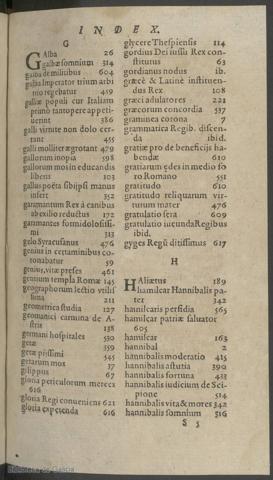 INDEX.
G
GAlba 26
galbæ somnium 514
galba de militibus 604
galba Imperator trium arbitrio regebatur 459
galliæ populi cur Italiam primò tantopere appetiuerint 386
galli virtute non dolo certant 455
galli molliter ægrotant 479
gallorum inopia 598
gallorum mos in educandis liberis 103
gallus poëta sibi ipsi manus infert 352
garamantum Rex à canibus ab exilio reductus 172
garamantes formidolosissimi 313
gelo Syracusanus 476
genius in certaminibus coronabatur 59
genius, vitæ præses 461
genium templa Romæ 145
geographorum lectio vtilis 211
geometrica studia 127
germanici carmina de Astris 138
germani hospitales 530
getæ 359
getæ pijssimi 545
getarum mos 37
gilippus 67
gloria periculorum merces 616
gloria Regi conueniens 621
gloria expetenda 616
glycere Thespiensis 114
gordius Dei iussu Rex constitutus 63
gordianus nodus ib.
græcè & Latinè instituendus Rex 108
græci adulatores 221
græcorum concordia 537
graminea corona 7
grammatica Regib. discenda ibid.
gratiæ pro de beneficijs habendæ 610
gratiarum ędes in medio foro Romano 551
gratitudo 610
gratitudo reliquarum virtutum mater 476
gratulatio sera 609
gratulatio iucunda Regibus ibid.
gyges Regū ditissimus 617
H
HAliætus 189
Hamilcar Hannibalis pater 342
hamilcaris persidia 565
hamilcar patriæ saluator 605
hamilcar 163
hannibal 2
hannibalis moderatio 415
hannibalis astutia 390
hannibalis fortuna 423
hannibalis iudicium de Scipione 514
hannibalis vita & mores 342
hannibalis somnium 516
S 5